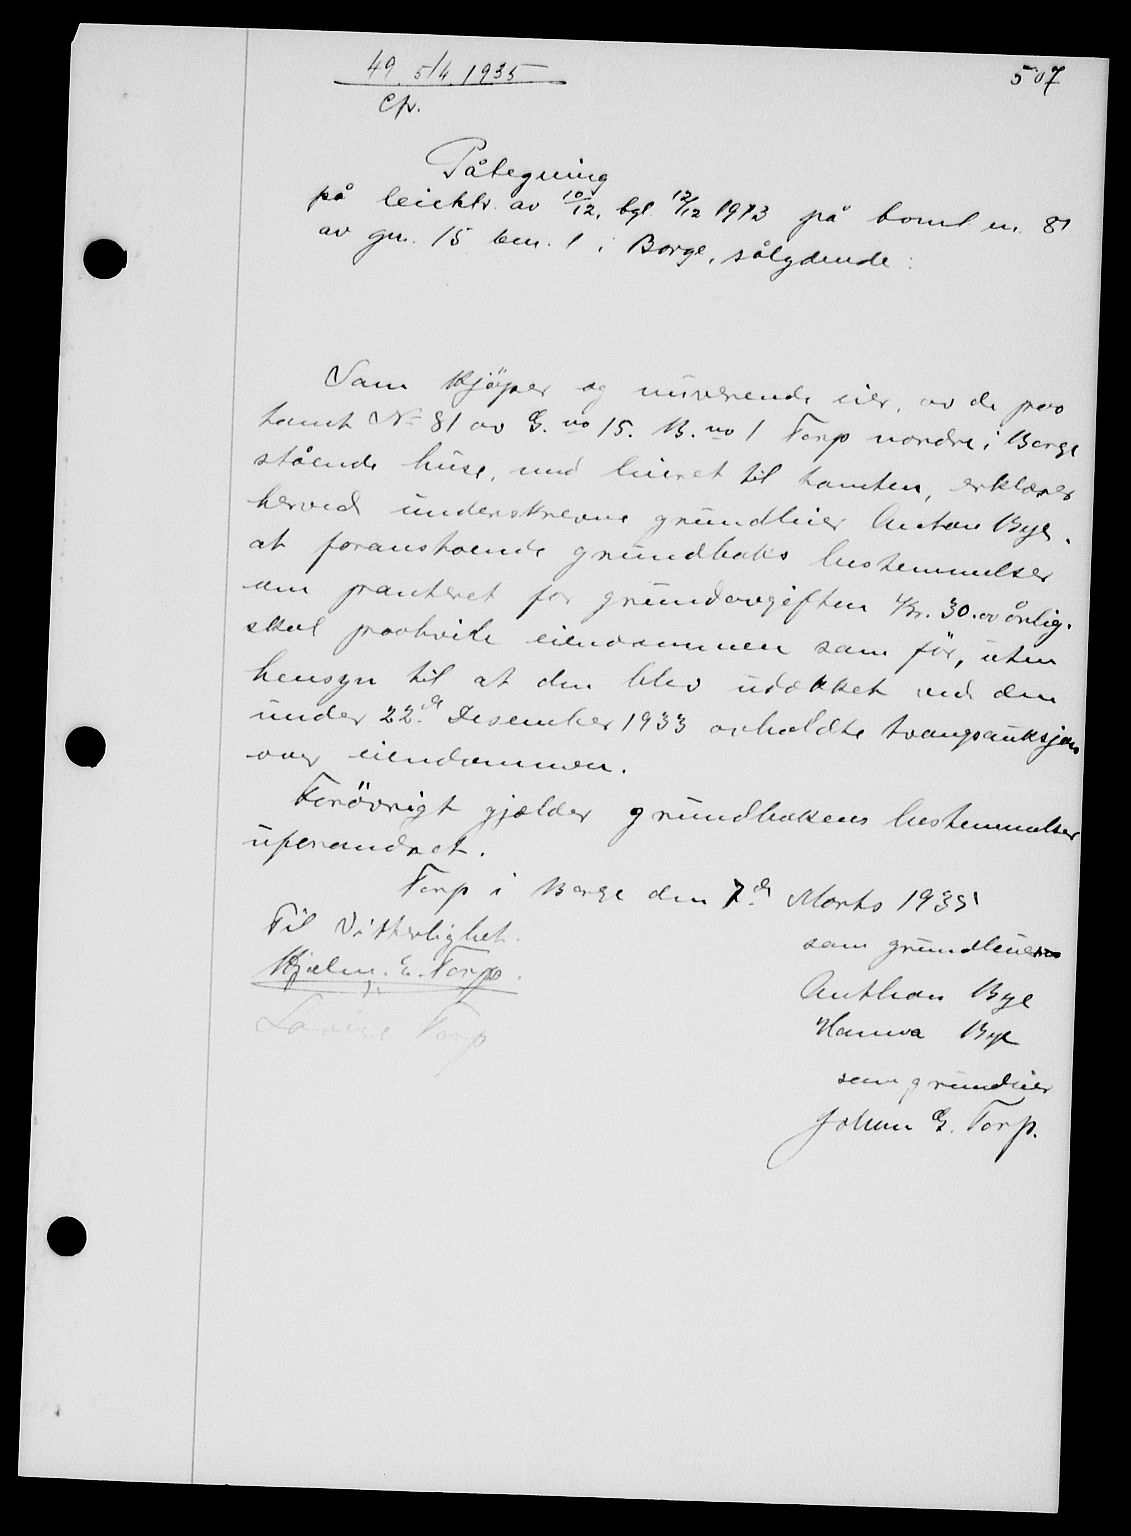 49. 5/4. 1935
507
Cp.
Påtegning
på leiektr. av 10/12, bgl 12/12 1913 på tomt nr. 81
av gn. 15 bn. 1 i Borge, sålydende:
Som kjöper og nuverende eier, av de paa
tomt No 81 av G. no 15. B. no 1 Torp nordre i Borge
stående huse, med leieret til tomten, erklærer
herved underskrevne grundleier Anton Bye.
at foranstaaende grundboks bestemmelser
om panteret for grundavgiften Kr. 30.00 årlig.
skal paahvile eiendommen som för, uten
hensyn til at den blev udækket ved den
under 22.de Desember 1933 avholdte tvangsauksjon
over eiendommen.
Forövrigt gjælder grundbokens bestemmelser
uforandret.
Torp i Borge den 7.de Marts 1935
Til Vitterlighet.
som grundleiere
Hjalm. E. Torp.
Anthon Bye
Lovise Torp
Hanna Bye
som grundeier
Johan G. Torp.